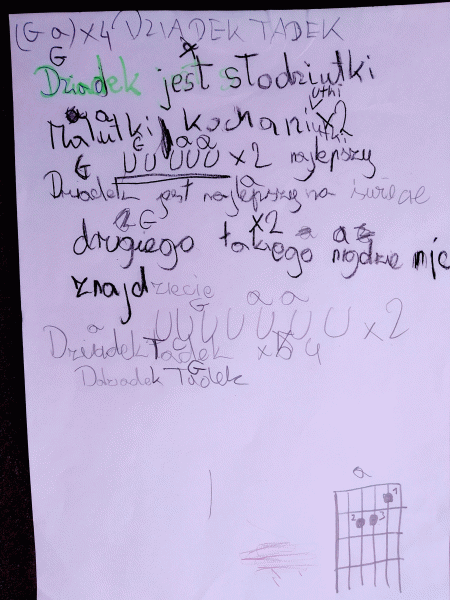 (G a) x4 DZIADEK TADEK
G a
Dziadek jest słodziutki
a a utki
Malutki kochaniutki x2
G G a a
U U U U U x2 najlepszy
a
Dziadek jest najlepszy na świecie
G x2 a
drugiego takiego nigdzie nie
znajdziecie
G a a
U U U U U U U x2
a
Dziadek Tadek x 4
G
Dziadek Tadek
a
1
2 3